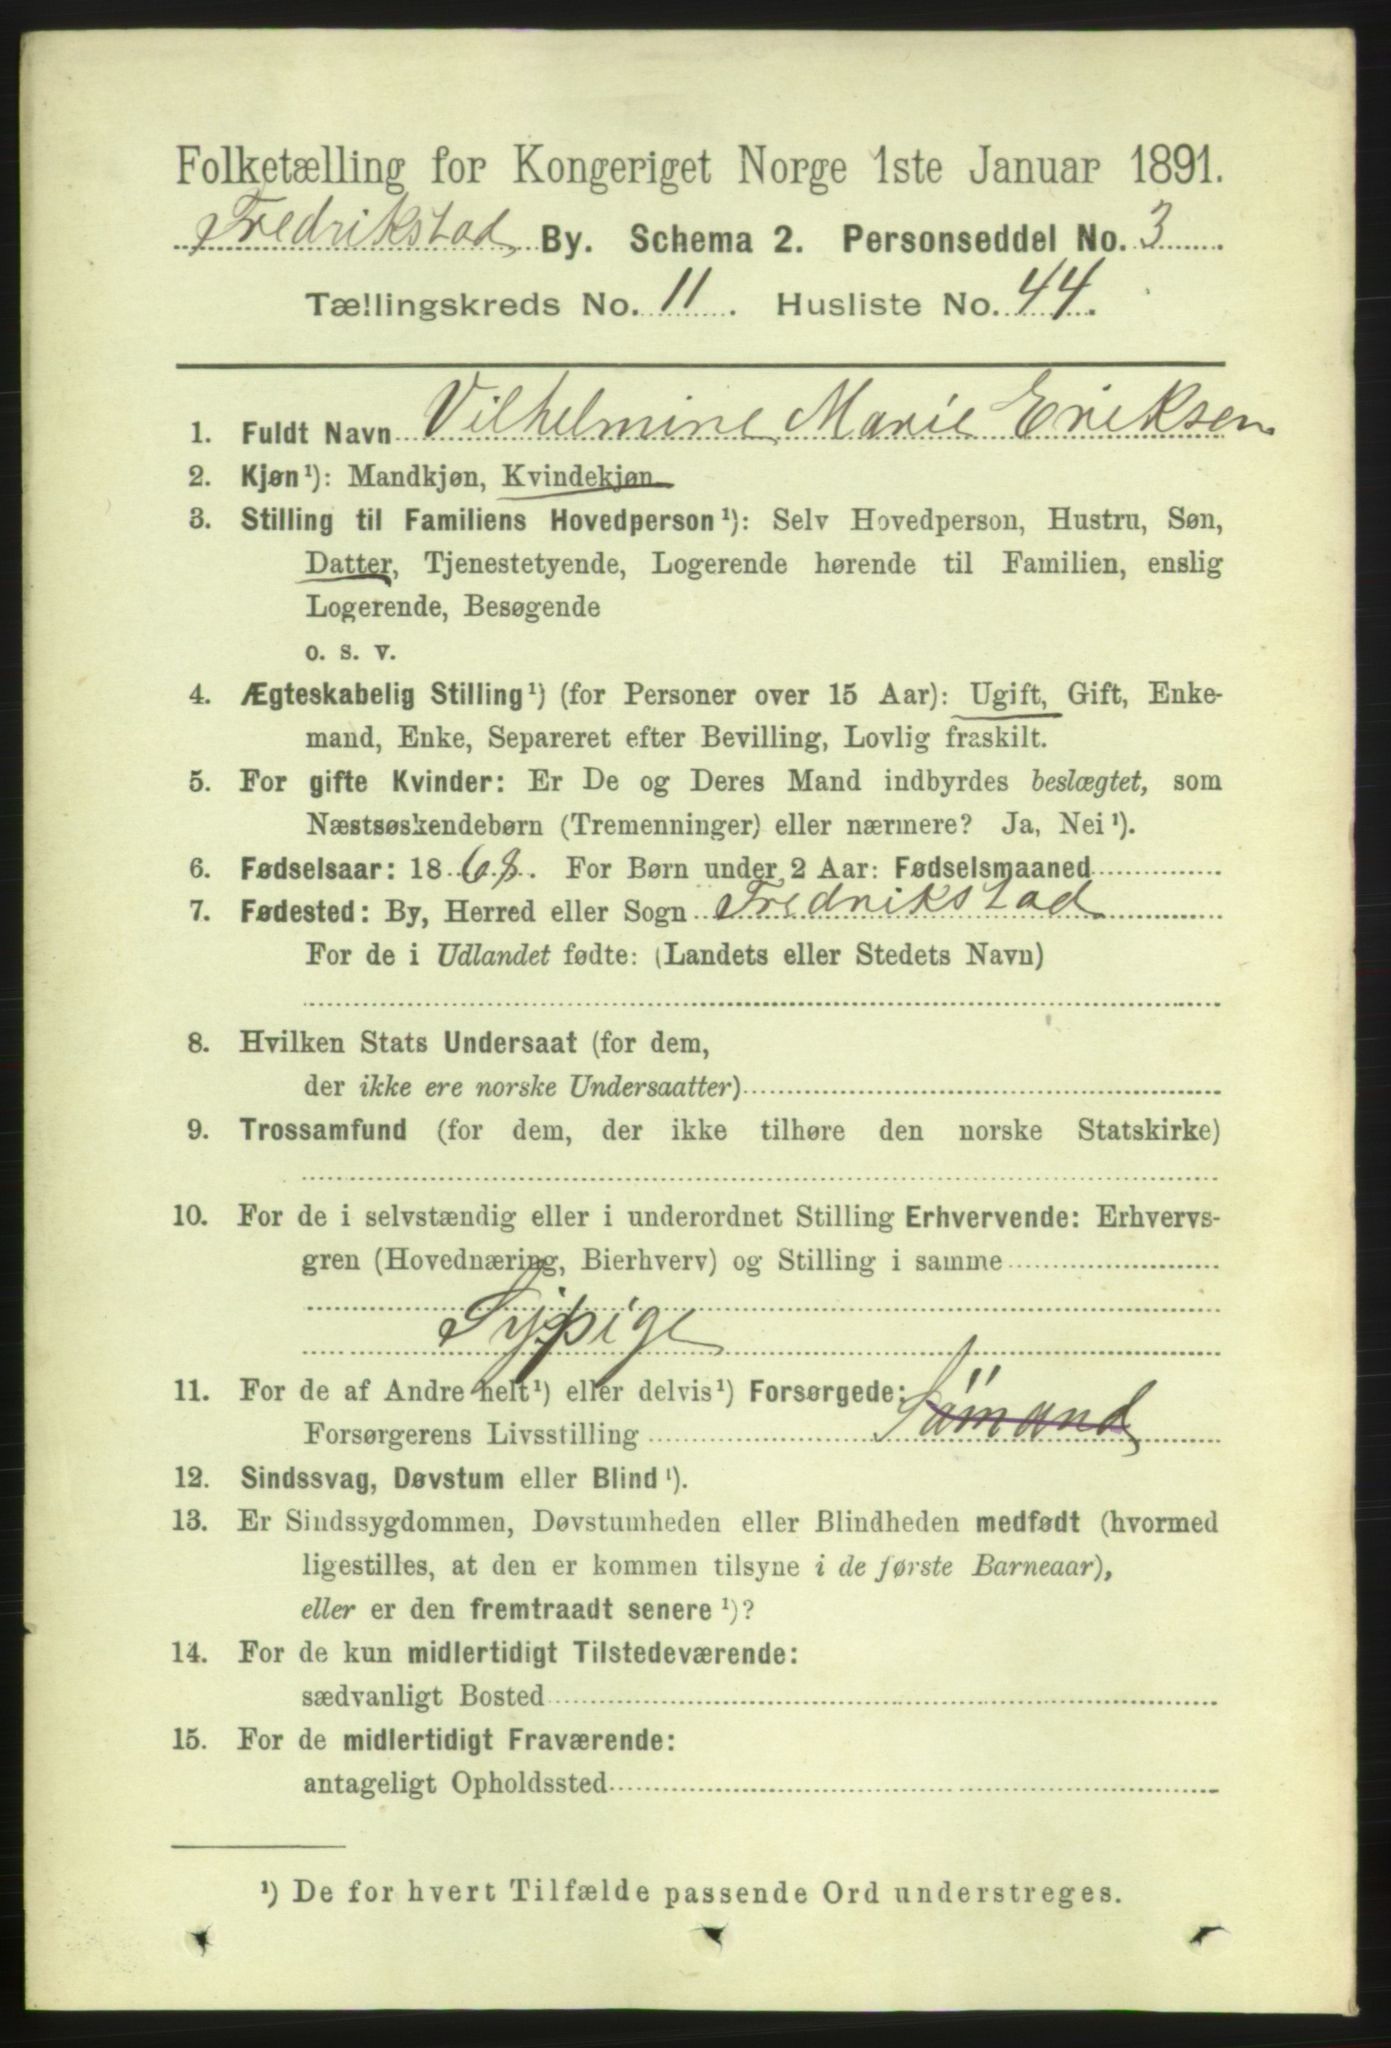 Folketælling for Kongeriget Norge 1ste Januar 1891.
Fredrikstad By. Schema 2. Personseddel No. 3
Tællingskreds No. 11. Husliste No. 44.
1. Fuldt Navn Vilhelmine Marie Eriksen
2. Kjøn¹): Mandkjøn, Kvindekjøn
3. Stilling til Familiens Hovedperson¹): Selv Hovedperson, Hustru, Søn,
Datter, Tjenestetyende, Logerende hørende til Familien, enslig
Logerende, Besøgende
o. s. v.
4. Ægteskabelig Stilling¹) (for Personer over 15 Aar): Ugift, Gift, Enke-
mand, Enke, Separeret efter Bevilling, Lovlig fraskilt.
5. For gifte Kvinder: Er De og Deres Mand indbyrdes beslægtet, som
Næstsøskendebørn (Tremenninger) eller nærmere? Ja, Nei¹).
6. Fødselsaar: 1868. For Børn under 2 Aar: Fødselsmaaned
7. Fødested: By, Herred eller Sogn Fredrikstad
For de i Udlandet fødte: (Landets eller Stedets Navn)
8. Hvilken Stats Undersaat (for dem,
der ikke ere norske Undersaatter)
9. Trossamfund (for dem, der ikke tilhøre den norske Statskirke)
10. For de i selvstændig eller i underordnet Stilling Erhvervende: Erhvervs-
gren (Hovednæring, Bierhverv) og Stilling i samme
Sypige
11. For de af Andre helt¹) eller delvis¹) Forsørgede:
Forsørgerens Livsstilling Sömand
12. Sindssvag, Døvstum eller Blind¹).
13. Er Sindssygdommen, Døvstumheden eller Blindheden medfødt (hvormed
ligestilles, at den er kommen tilsyne i de første Barneaar),
eller er den fremtraadt senere¹)?
14. For de kun midlertidigt Tilstedeværende:
sædvanligt Bosted
15. For de midlertidigt Fraværende:
antageligt Opholdssted
¹) De for hvert Tilfælde passende Ord understreges.